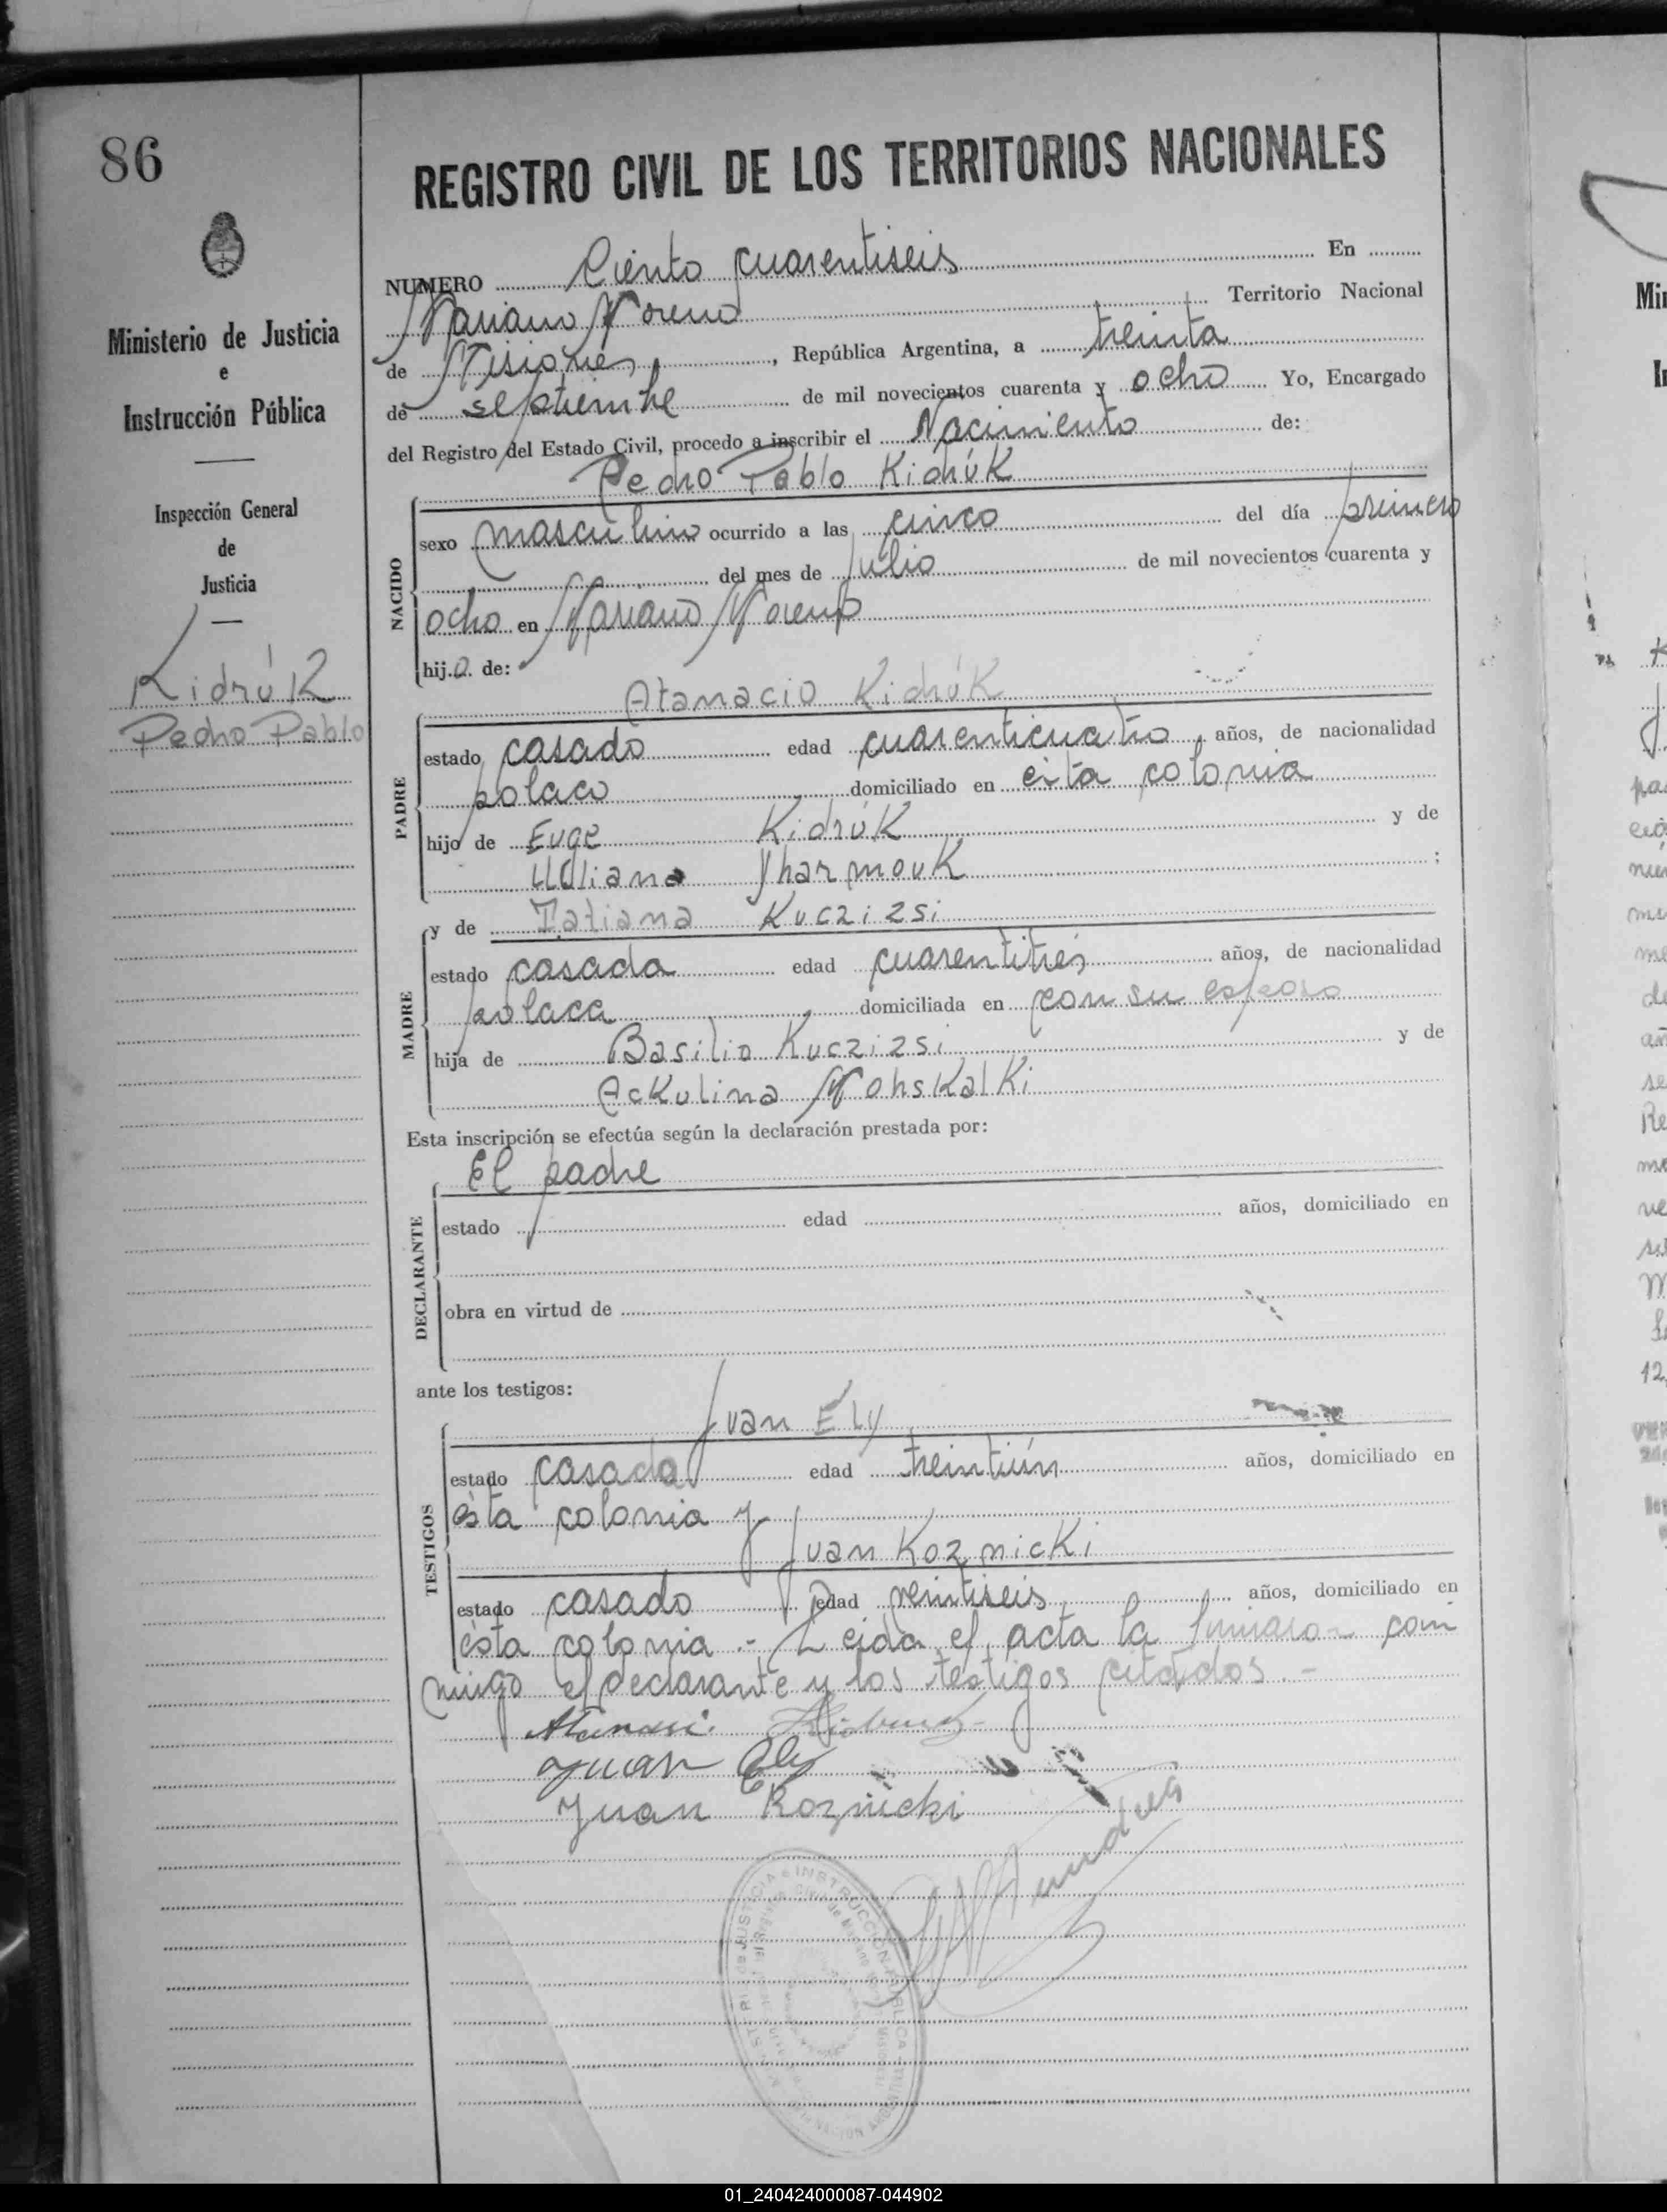 86
REGISTRO CIVIL DE LOS TERRITORIOS NACIONALES
Ministerio de Justicia
e
Instrucción Pública
Inspección General
de
Justicia
Kidrúk
Pedro Pablo
NUMERO Ciento cuarentiseis En
Mariano Moreno Territorio Nacional
de Misiones, República Argentina, a treinta
de septiembre de mil novecientos cuarenta y ocho Yo, Encargado
del Registro del Estado Civil, procedo a inscribir el Nacimiento de:
Pedro Pablo Kidrúk
NACIDO
sexo masculino ocurrido a las cinco del día primero
del mes de Julio de mil novecientos cuarenta y
ocho en Mariano Moreno
hijo de:
Atanacio Kidrúk
PADRE
estado casado edad cuarenticuatro años, de nacionalidad
polaco domiciliado en esta colonia
hijo de Euge Kidrúk y de
Uliana Jharmouk ;
y de Tatiana Kuczizsi
MADRE
estado casada edad cuarentitrés años, de nacionalidad
polaca domiciliada en con su esposo
hija de Basilio Kuczizsi y de
Ackulina Mohskalki
Esta inscripción se efectúa según la declaración prestada por:
El padre
DECLARANTE
estado edad años, domiciliado en
obra en virtud de
ante los testigos:
Juan Ely
TESTIGOS
estado casado edad treintiún años, domiciliado en
ésta colonia y
Juan Koznicki
estado casado edad veintiseis años, domiciliado en
ésta colonia.- Leida el acta la firmaron con
migo el declarante y los testigos citados.-
Atanasi
Juan Ely
Juan Koznicki
JUSTICIA e INSTRUCCION PUBLICA
01_240424000087-044902